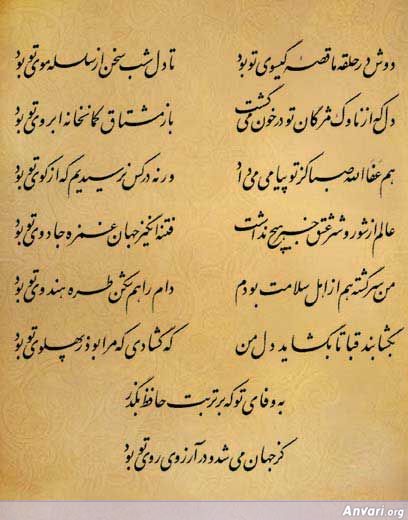 دوش در حلقه ما قصه گیسوی تو بود تا دل شب سخن از سلسله موی تو بود
دل که از ناوک مژگان تو در خون می گشت باز مشتاق کمانخانه ابروی تو بود
هم عفا الله صبا کز تو پیامی می داد ورنه در کس نرسیدیم که از کوی تو بود
عالم از شور و شر عشق خبر هیچ نداشت فتنه انگیز جهان غمزه جادوی تو بود
من سرگشته هم از اهل سلامت بودم دام راهم شکن طره هندوی تو بود
بگشا بند قبا تا بگشاید دل من که گشادی که مرا بود ز پهلوی تو بود
به وفای تو که بر تربت حافظ بگذر
کز جهان می شد و در آرزوی روی تو بود
Anvari.org